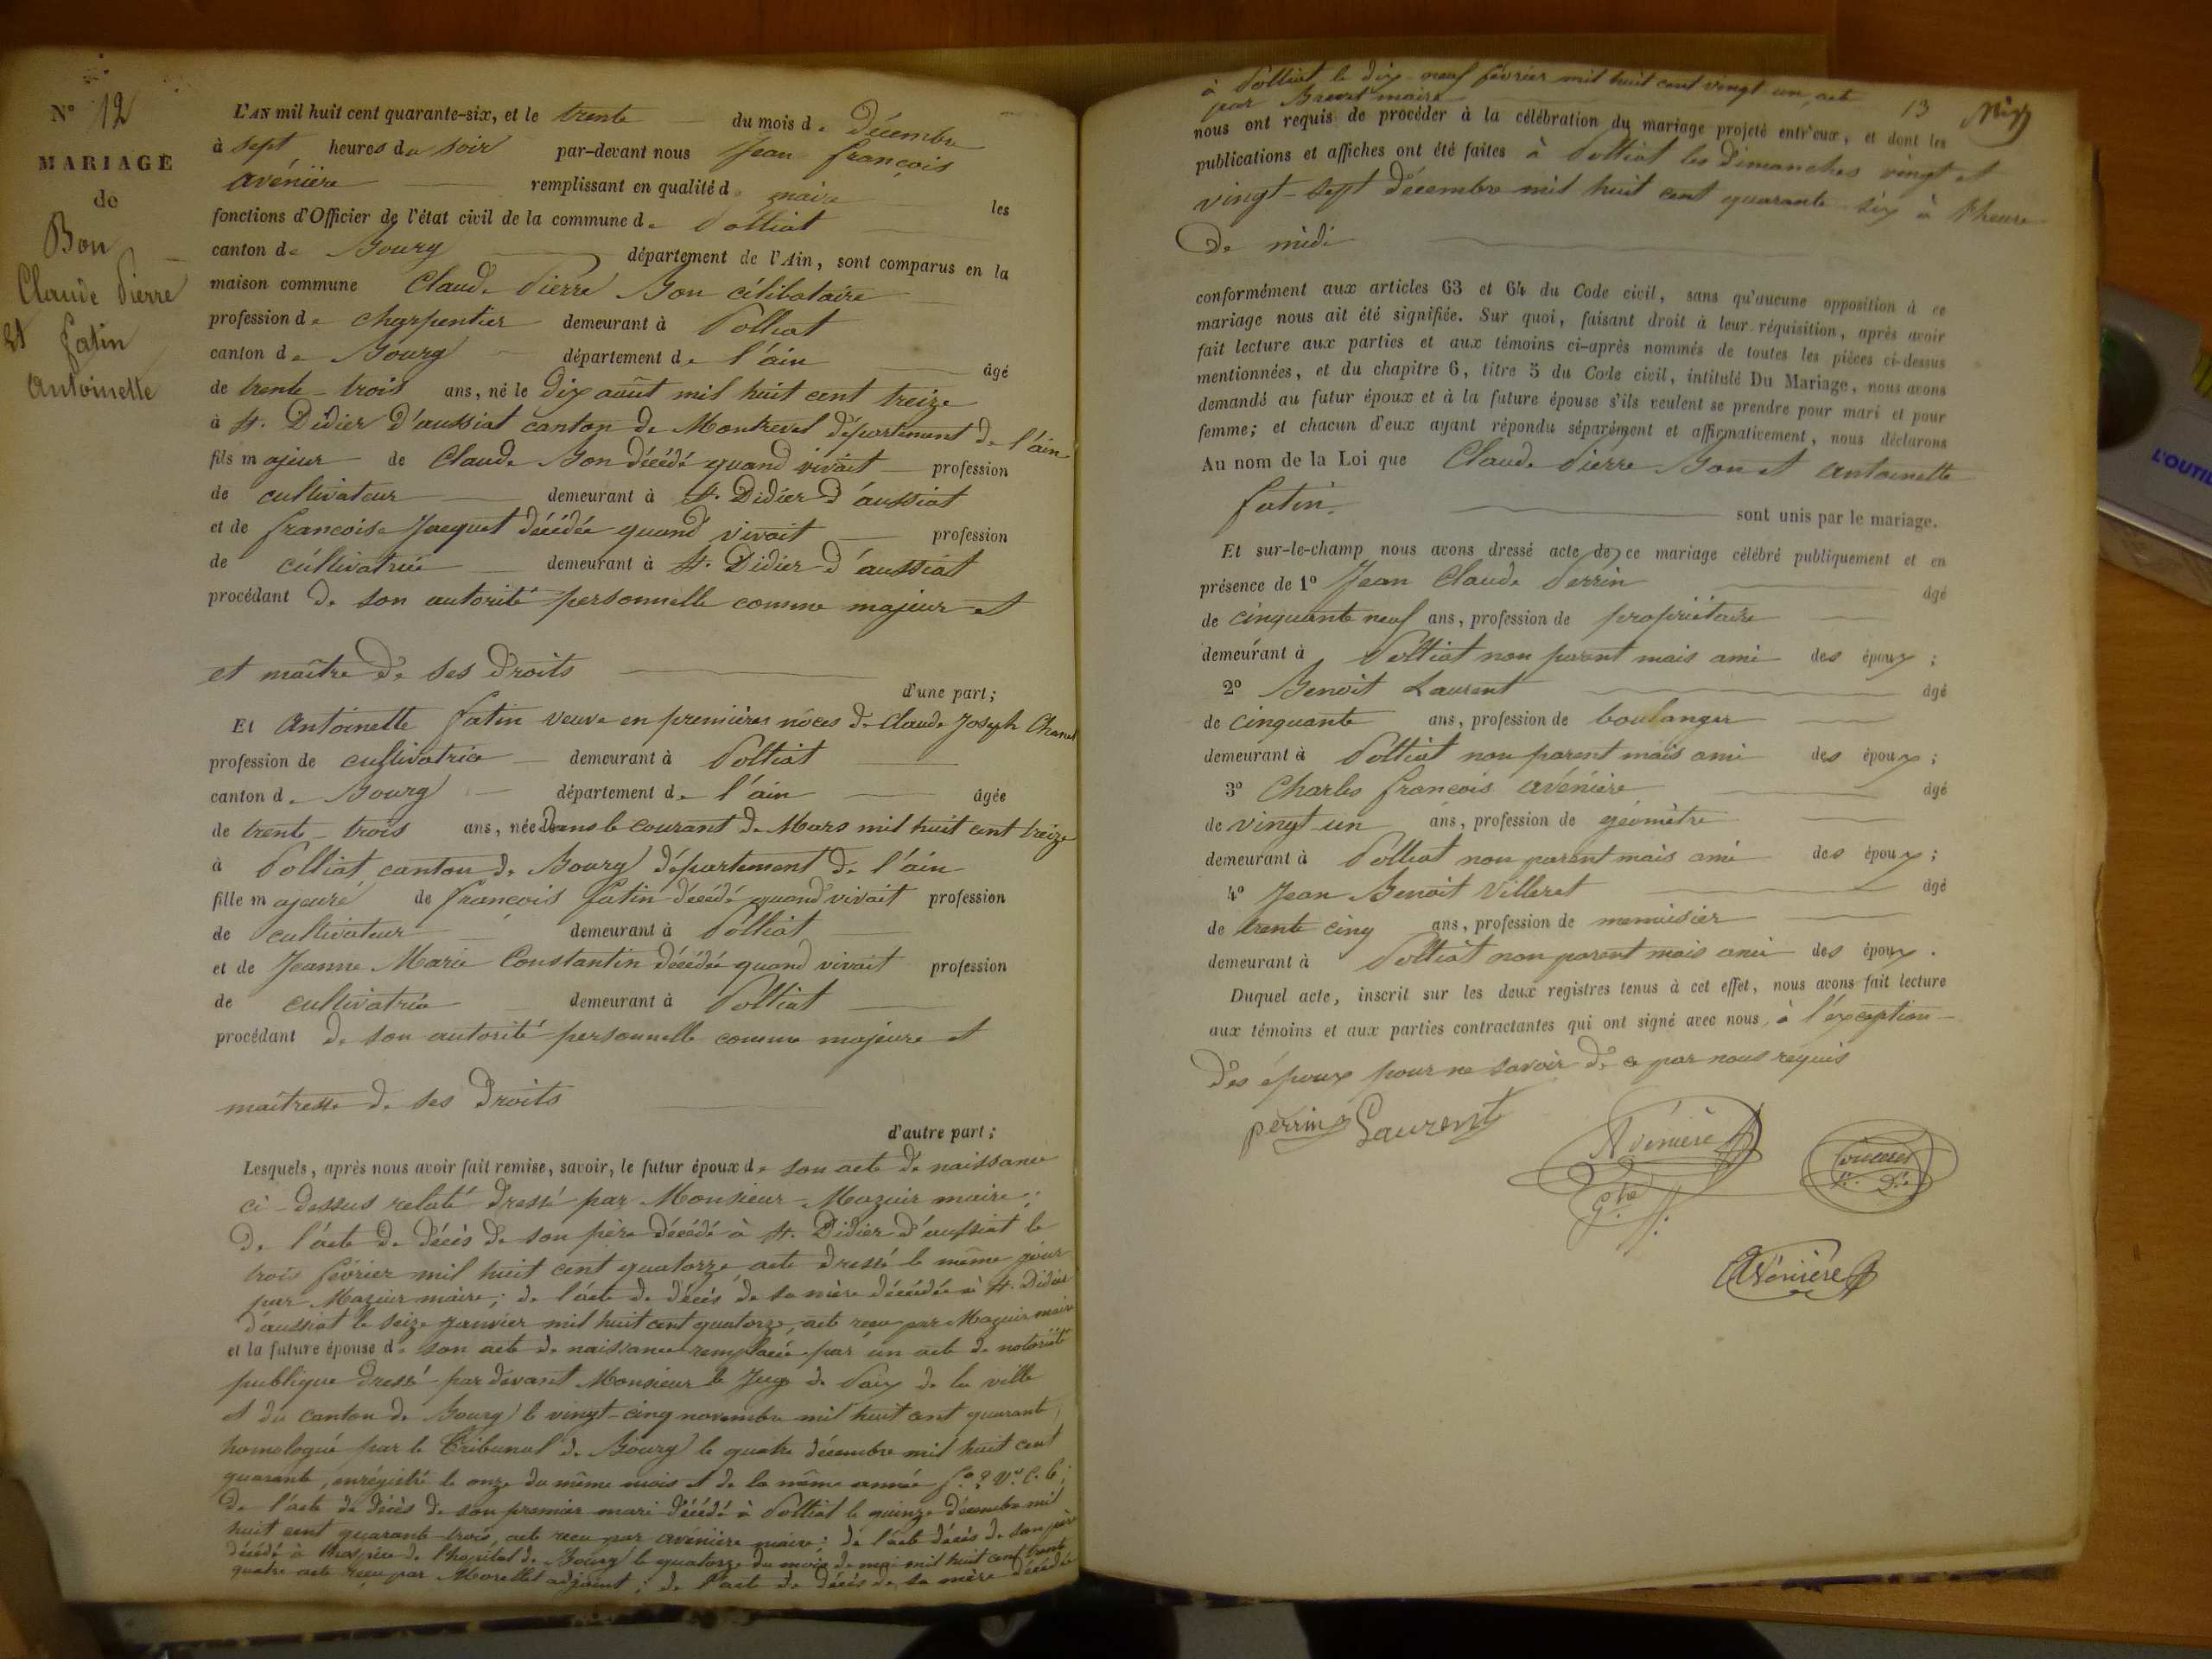 N° 12
MARIAGE
de
Bon
Claude Pierre
Et fatin
antoinette
L'AN mil huit cent quarante-six, et le trente du mois de décembre
à sept heures du soir par-devant nous Jean françois
avénière remplissant en qualité de maire les
fonctions d'Officier de l'état civil de la commune de Polliat
canton de Bourg département de l'Ain, sont comparus en la
maison commune Claude Pierre Bon célibataire
profession de charpentier demeurant à Polliat
canton de Bourg département de l'ain âgé
de trente-trois ans, né le dix août mil huit cent treize
à St. Didier d'aussiat canton de Montrevel département de l'ain
fils majeur de Claude Bon décédé quand vivait profession
de cultivateur demeurant à St. Didier d'aussiat
et de francoise Jacquet décédée quand vivait profession
de cultivatrice demeurant à St. Didier d'aussiat
procédant de son autorité personnelle comme majeur et
et maître de ses droits
d'une part;
Et antoinette fatin veuve en premières nôces de Claude Joseph Chanel
profession de cultivatrice demeurant à Polliat
canton de Bourg département de l'ain âgée
de trente-trois ans, née dans le courant de Mars mil huit cent treize
à Polliat canton de Bourg département de l'ain
fille majeure de francois fatin décédé quand vivait profession
de cultivateur demeurant à Polliat
et de Jeanne Marie Constantin décédée quand vivait profession
de cultivatrice demeurant à Polliat
procédant de son autorité personnelle comme majeure et
maîtresse de ses droits
d'autre part;
Lesquels, après nous avoir fait remise, savoir, le futur époux de son acte de naissance
ci-dessus relaté dressé par Monsieur Mazuir maire;
de l'acte de décès de son père décédé à St. Didier d'aussiat le
trois février mil huit cent quatorze acte dressé le même jour
par Mazuir maire; de l'acte de décès de sa mère décédée à St. Didier
d'aussiat le seize janvier mil huit cent quatorze, acte recu par Mazuir maire
et la future épouse de son acte de naissance remplacé par un acte de notoriété
publique dressé pardevant Monsieur le Juge de Paix de la ville
et du canton de Bourg le vingt-cinq novembre mil huit cent quarante,
homologué par le Tribunal de Bourg le quatre décembre mil huit cent
quarante, enrégistré le onze du même mois et de la même année f° 2 V° C. 6;
de l'acte de décès de son premier mari décédé à Polliat le quinze décembre mil
huit cent quarante-trois, acte recu par avénière maire; de l'acte décès de son père
décédé à l'hospice de l'hopital de Bourg le quatorze du mois de mai mil huit cent trente
quatre acte recu par Morellet adjoint; de l'acte de décès de sa mère décédée
à Polliat le dix-neuf février mil huit cent vingt-un, acte
par Brevet maire
13
nous ont requis de procéder à la célébration du mariage projeté entr'eux, et dont les
publications et affiches ont été faites à Polliat les dimanches vingt et
vingt-sept décembre mil huit cent quarante-six à l'heure
de midi
conformément aux articles 63 et 64 du Code civil, sans qu'aucune opposition à ce
mariage nous ait été signifiée. Sur quoi, faisant droit à leur réquisition, après avoir
fait lecture aux parties et aux témoins ci-après nommés de toutes les pièces ci-dessus
mentionnées, et du chapitre 6, titre 5 du Code civil, intitulé Du Mariage, nous avons
demandé au futur époux et à la future épouse s'ils veulent se prendre pour mari et pour
femme; et chacun d'eux ayant répondu séparément et affirmativement, nous déclarons
Au nom de la Loi que Claude Pierre Bon et antoinette
fatin.
sont unis par le mariage.
Et sur-le-champ nous avons dressé acte de ce mariage célébré publiquement et en
présence de 1° Jean Claude Perrin âgé
de cinquante neuf ans, profession de propriétaire
demeurant à Polliat non parent mais ami des époux;
2° Benoit Laurent âgé
de cinquante ans, profession de boulanger
demeurant à Polliat non parent mais ami des époux;
3° Charles françois avénière âgé
de vingt-un ans, profession de géomètre
demeurant à Polliat non parent mais ami des époux;
4° Jean Benoit Villeret âgé
de trente cinq ans, profession de menuisier
demeurant à Polliat non parent mais ami des époux.
Duquel acte, inscrit sur les deux registres tenus à cet effet, nous avons fait lecture
aux témoins et aux parties contractantes qui ont signé avec nous, à l'exception
des époux pour ne savoir de ce par nous requis
perrin Laurent
Avénière
Gtre
Avénière
L'OUTIL